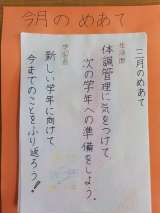 今月のめあて
三月のめあて
生活面
体調管理に気をつけて
次の学年への準備をしよう。
学習面
新しい学年に向けて
今までのことをふり返ろう!!